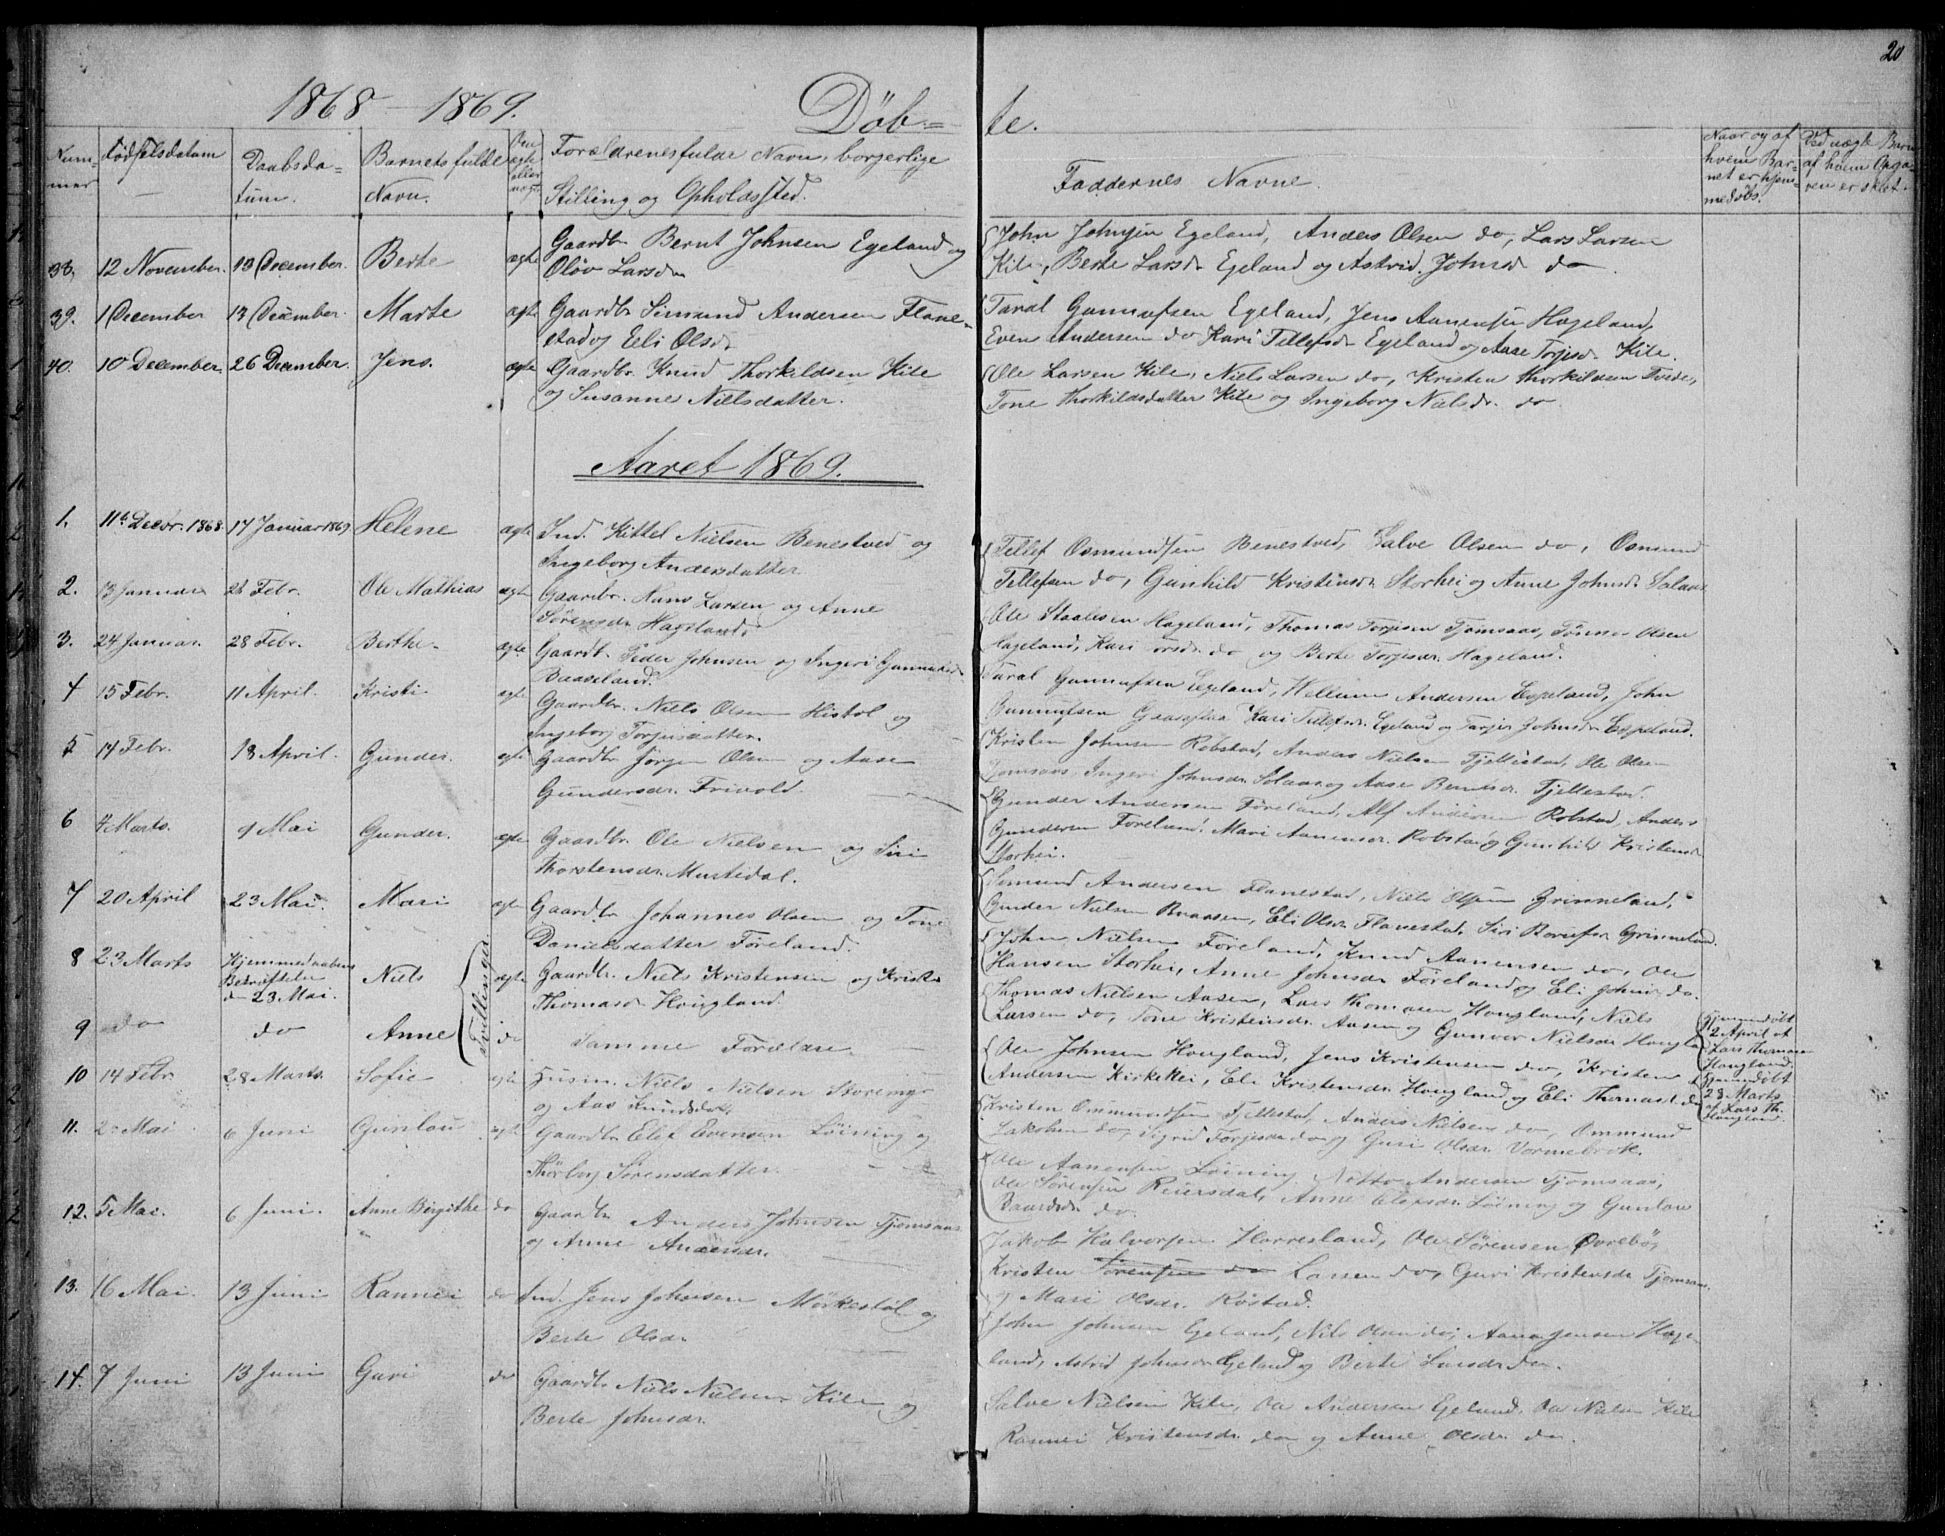 20
1868–1869. Döb= te.
Num-mer
Födselsdatum
Daabsda-tum.
Barnets fulde Navn.
Forældrenes fulde Navn, borgerlige
Stilling og Opholdssted.
Faddernes Navne.
Naar og af
hvem Bar-
net er hjem-
medöbt.
Ved uægte Barn
af hvem Opga-
ven er sket.
38. 12 November. 13 December. Berte ægte Gaardbr Bernt Johnsen Egeland og
Olöv Larsdr
John Johnsen Egeland, Anders Olsen do, Lars Larsen
Kile, Berte Larsdr Egeland og Astrid Johnsdr do.
39. 1 December 13 December. Marte ægte Gaardbr Simund Andersen Flane-
stad og Eli Olsdr
Taral Gunnufsen Egeland, Jens Aanensen Hageland,
Even Andersen do Kari Tellefsdr Egeland og Aase Torjesdr Kile.
40. 10 December. 26 December. Jens. ægte Gaardbr. Knud Thorkildsen Kile
og Susanne Nielsdatter.
Ole Larsen Kile, Niels Larsen do, Kristen Thorkildsen Tvede,
Tone Thorkildsdatter Kile og Ingeborg Nielsdr. do
Aaret 1869.
1. 11te Decbr. 1868. 17 Januar 1869 Helene ægte Ind. Kittel Nielsen Benestved og
Ingeborg Andersdatter
Tellef Osmundsen Benestved, Salve Olsen do, Osmund
Tellefsen do, Gunhild Kristensdr Storhei og Anne Johnsdr Solaas
2. 13 Januar 28 Febr. Ole Mathias ægte Gaardbr. Hans Larsen og Anne
Sörensdr Hageland.
Ole Staalesen Hageland, Thomas Torjesen Tjomsaas, Tönnes Olsen
Hageland, Kari do og Berte Torjesdr. Hageland.
3. 24 Januar. 28 Febr. Berthe. ægte Gaardb. Peder Johnsen og Ingeri Gunnufsdr
Taral Gunnufsen Egeland, Willum Andersen Espeland, John
Gunnufsen Kari Tellefsdr. Egeland og Johnsdr Espeland.
4 15 Febr. 11 April. Kristi ægte Gaardbr. Niels Olsen Histöl og
Ingeborg Torjusdatter.
Kristen Johnsen Robstad, Anders Nielsen Fjellestad, Ole Olsen
Tjomsaas, Ingeri Johnsdr. Solaas og Aase Berntsdr. Fjellestad.
5 14 Febr. 18 April. Gunder. ægte Gaardbr Jörgen Olsen og Aase
Gundersdr. Frivold.
Gunder Andersen Föreland, Alf Andersen Robstad, Anders
Gundersen Föreland, Mari Aanensdr. Robstad og Gunhild Kristensdr
Storhei.
6 4 Marts. 9 Mai Gunder. ægte Gaardbr. Ole Nielsen og Siri
Thorstensdr. Mustedal.
Simund Andersen Flanestad, Niels Olsen Grinneland,
Gunder Nielsen Eli Olsdr Flanestad, Siri Grinneland.
7 20 April 23 Mai. Mari ægte Gaardbr Johannes Olsen og Tone
Danielsdatter Föreland.
John Nielsen Föreland, Knud Aanensen do, Ole
Hansen Storhei, Anne Johnsdr Föreland og Eli Johnsdr do.
8 23 Marts Hjemmedaaben
Bekræftet
den 23. Mai. Niels Tvillinger ægte Gaardbr. Niels Kristensen og Kristi
Thomasdr Hougland
Thomas Nielsen Aasen, Lars Thomasen Hougland, Niels
Larsen do, Tone Kristensdr. Aasen og Gunvor Nielsdr Hougland
Hjemmedöbt
2 April af
Lars Thomasen
Hougland.
9 do do Anne do Samme Forældre.
Ole Johnsen Hougland, Jens Kristensen do, Kristen
Andersen Kirkekei, Eli Kristensdr. Hougland og Eli Thomasd. do
Hjemmedöbt
28 Marts
af Lars Th.
Hougland.
10 14 Febr 28 Marts. Sofie ægte Husm. Niels Nielsen Storemyr
og Aas Knudsdatr.
Kristen Ommundsen Fjellestad, Anders Nielsen do, Ommund
Jakobsen do, Sigrid Torjesdr do og Guri Olsdr. Vormebrok.
11. 2 Mai 6 Juni Gunlou ægte Gaardbr Elef Evensen Löining og
Thorborg Sörensdatter.
Ole Aanensen Löining, Notto Andersen Tjomsaas,
Ole Sörensen Reiersdal, Anne Elefsdr. Löining og Gunlou
Baardsdr do.
12. 5 Mai. 6 Juni. Anne Birgithe do Gaardbr Anders Johnsen Tjomsaas
og Anne Andersdr.
Jakob Halvorsen Harresland, Ole Sörensen Övrebö,
Kristen Sörensen do Larsen do, Guri Kristensdr Tjomsaas
og Mari Olsdr. Röstad.
13. 16 Mai. 13 Juni Rannei do Ind. Jens Johnsen Mörkestöl og
Berte Olsdr
John Johnsen Egeland, Nils Olsen do, Aanen Jensen Hage-
land, Astrid Johnsdr Egeland og Berte Larsdr do.
14. 7 Juni 13 Juni Guri do Gaardbr Niels Nielsen Kile og
Berte Johnsdr.
Salve Nielsen Kile, Ole Andersen Egeland, Ole Nielsen Kile
Rannei Kristensdr. do og Anne Olsdr do.